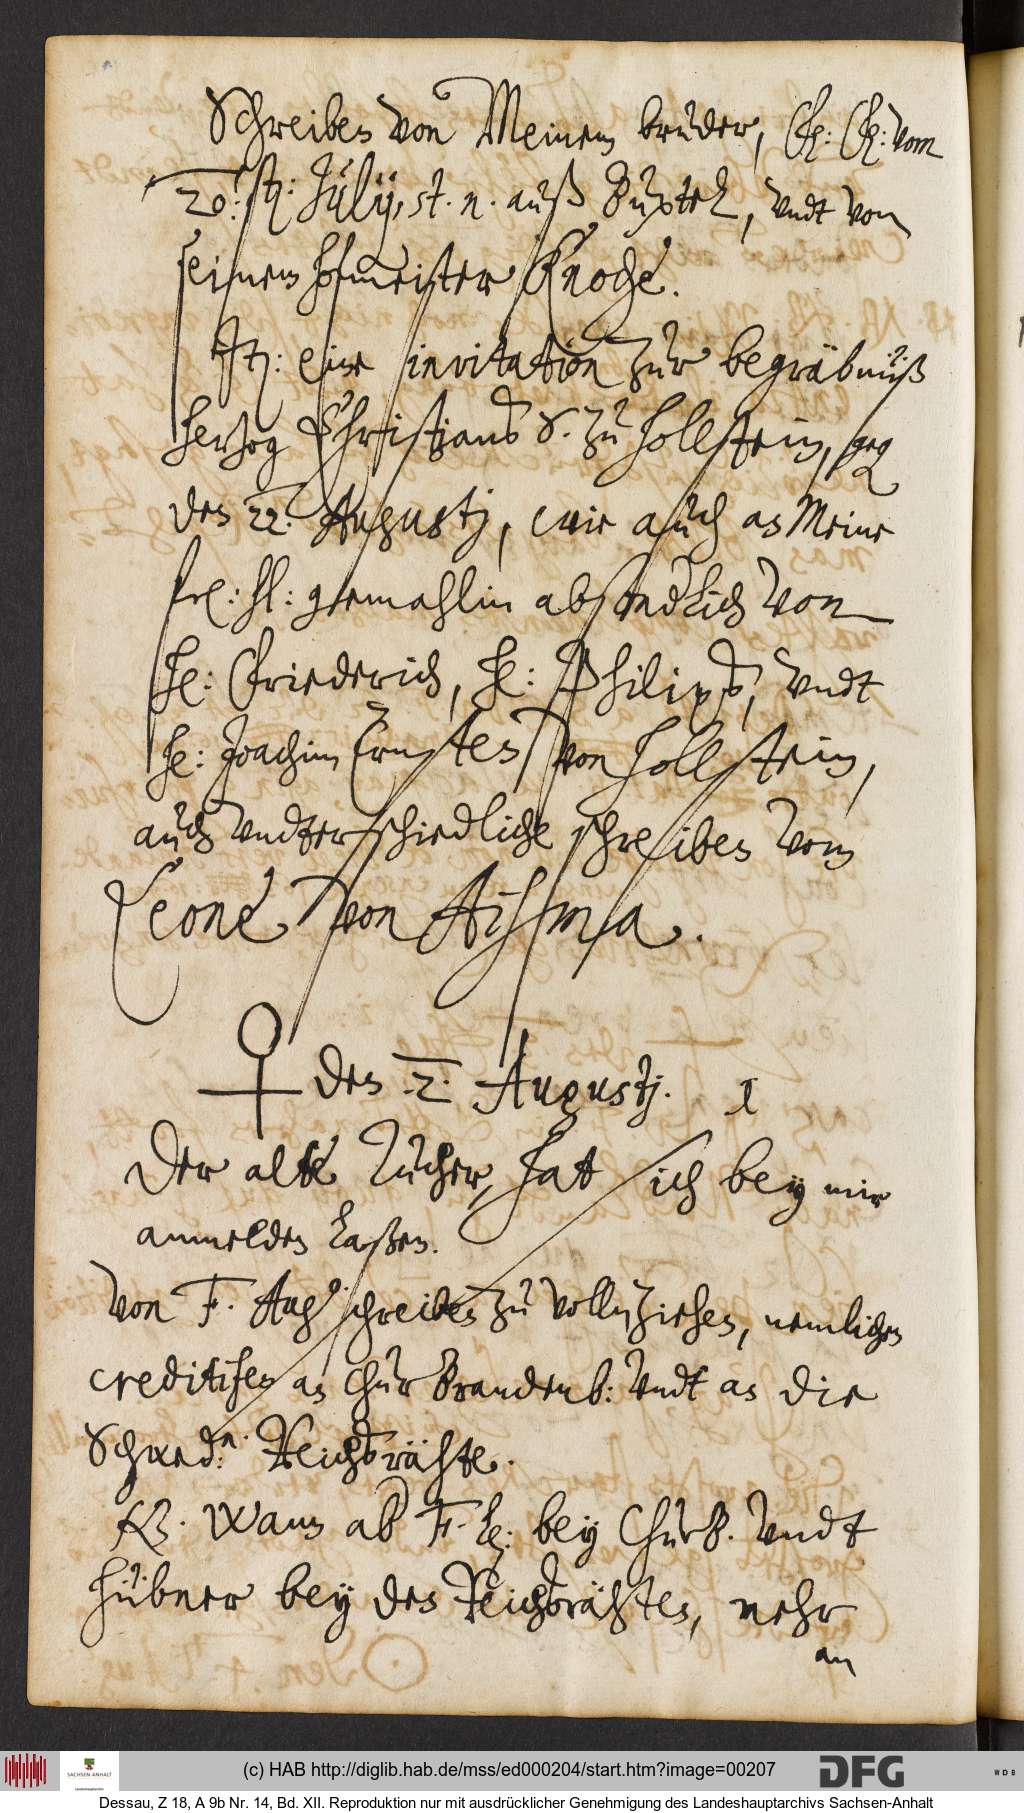 Schreiben von Meinem bruder, F: F: vom
20. h: Julÿ, st. n. auß Buxteh, vndt von
seinem hofmeister Knoche.
It: eine invitation zur begräbnüß
herzog Christians S. zu Hollstein, geg
den 22. Augustj, wie auch an Meine
fr: hl: gemahlin absonderlich von
H: Friederich, H: Philips, vndt
H: Joachim Ernsten von Hollstein,
auch vndterschiedliche schreiben vom
Leone von Aißma.
♀ den 2. Augustj. 1
Der alte Zucher, hat sich bey mir
anmelden laßen.
Von F. Aug. schreiben zu vollnziehen, nemlichen
creditifen an Chur Brandenb: vndt an die
Schwed:n. Reichsrähte.
NB. Wann ab F. h: bey ChurB. vndt
hübner bey den Reichsrähten, nehr
an
(c) HAB http://diglib.hab.de/mss/ed000204/start.htm?image=00207
SACHSEN-ANHALT
DFG
WDB
Dessau, Z 18, A 9b Nr. 14, Bd. XII. Reproduktion nur mit ausdrücklicher Genehmigung des Landeshauptarchivs Sachsen-Anhalt